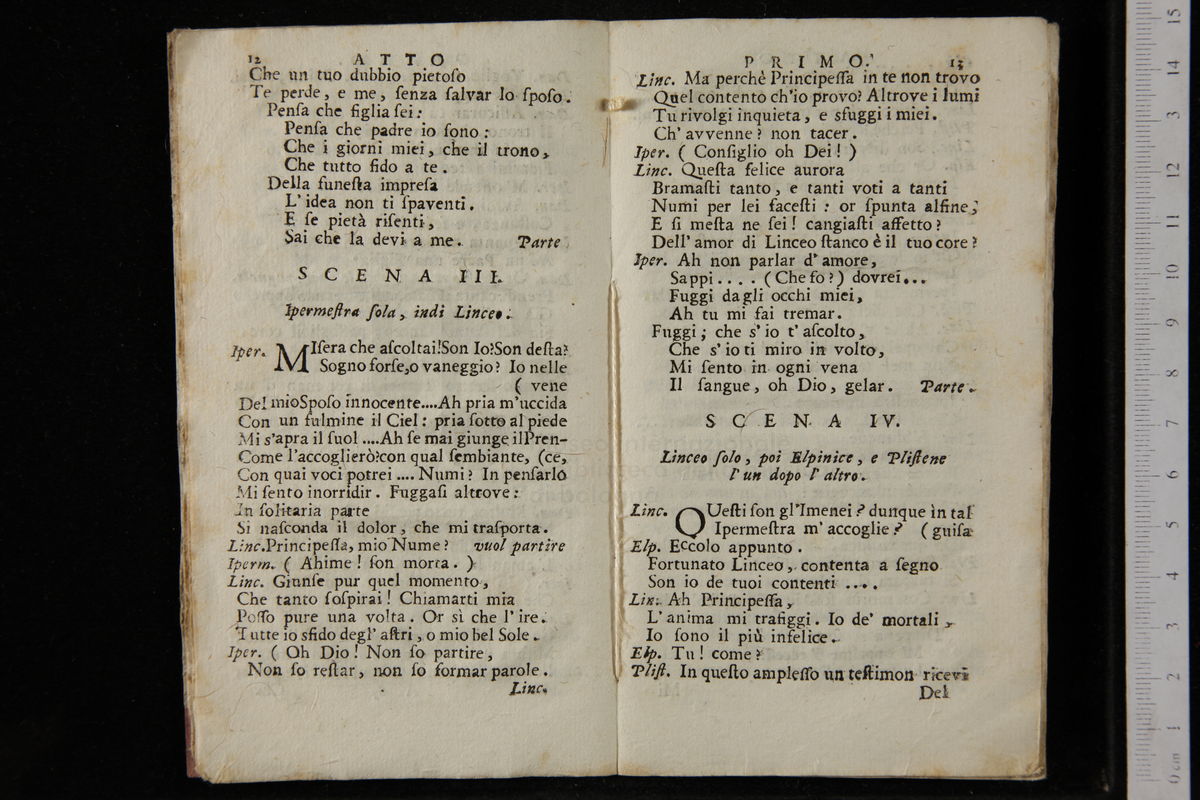 12 ATTO
Che un tuo dubbio pietoſo
Te perde, e me, ſenza ſalvar lo ſpoſo.
Penſa che figlia ſei:
Penſa che padre io ſono:
Che i giorni miei, che il trono,
Che tutto fido a te.
Della funeſta impreſa
L'idea non ti ſpaventi.
E ſe pietà riſenti,
Sai che la devi a me. Parte
SCENA III.
Ipermeſtra ſola, indi Linceo.
Iper. MIſera che aſcoltai!Son Io?Son deſta?
Sogno forſe,o vaneggio? Io nelle
( vene
Del mioSpoſo innocente....Ah pria m'uccida
Con un fulmine il Ciel: pria ſotto al piede
Mi s'apra il ſuol ....Ah ſe mai giunge ilPren-
Come l'accoglierò?con qual ſembiante, (ce,
Con quai voci potrei .... Numi? In penſarlo
Mi ſento inorridir. Fuggaſi altrove:
In ſolitaria parte
Si naſconda il dolor, che mi traſporta.
Linc.Principeſſa, mio Nume? vuol partire
Iperm. ( Ahime! ſon morta. )
Linc. Giunſe pur quel momento,
Che tanto ſoſpirai! Chiamarti mia
Poſſo pure una volta. Or sì che l'ire.
Tutte io sfido degl' aſtri, o mio bel Sole.
Iper. ( Oh Dio! Non ſo partire,
Non ſo reſtar, non ſo formar parole.
Linc.
PRIMO. 13
Linc. Ma perchè Principeſſa in te non trovo
Quel contento ch'io provo? Altrove i lumi
Tu rivolgi inquieta, e sfuggi i miei.
Ch' avvenne? non tacer.
Iper. ( Conſiglio oh Dei! )
Linc. Queſta felice aurora
Bramaſti tanto, e tanti voti a tanti
Numi per lei faceſti: or ſpunta alfine;
E ſi meſta ne ſei! cangiaſti affetto?
Dell' amor di Linceo ſtanco è il tuo core?
Iper. Ah non parlar d'amore,
Sappi.... (Che fo?) dovrei...
Fuggi dagli occhi miei,
Ah tu mi fai tremar.
Fuggi; che s'io t'aſcolto,
Che s'io ti miro in volto,
Mi ſento in ogni vena
Il ſangue, oh Dio, gelar. Parte.
SCENA IV.
Linceo ſolo, poi Elpinice, e Pliſtene
l'un dopo l'altro.
Linc. QUeſti ſon gl'Imenei? dunque in tal
Ipermeſtra m'accoglie? (guiſa
Elp. Eccolo appunto.
Fortunato Linceo, contenta a ſegno
Son io de tuoi contenti ....
Lin. Ah Principeſſa,
L'anima mi trafiggi. Io de' mortali,
Io ſono il più infelice.
Elp. Tu! come?
Pliſt. In queſto ampleſſo un teſtimon ricevi
Del
0 cm 1 2 3 4 5 6 7 8 9 10 11 12 13 14 15